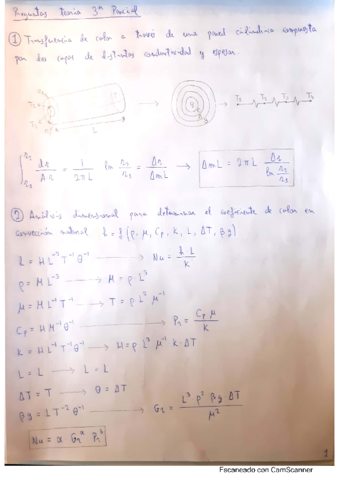 Preguntas Teoría 3er Parcial
① Transferencia de calor a través de una pared cilíndrica compuesta
por dos capas de distinta conductividad y espesor.
T₁ T₂ T₃
L
∫ dr/A·r = 1/2πL ln r₂/r₁ = Δr/AmL → AmL = 2πL Δr/ln r₂/r₁
② Análisis dimensional para determinar el coeficiente de calor en
convección natural h = f (ρ, μ, Cp, k, L, ΔT, βg)
Nu = h·L/k
ρ = M L⁻³ → M = ρ L³
μ = M L⁻¹ T⁻¹ → T = ρ L² μ⁻¹
Cp = H M⁻¹ θ⁻¹ → Pr = Cp μ/k
k = H L⁻¹ T⁻¹ θ⁻¹ → H = ρ L³ μ⁻¹ k ΔT
L = L → L = L
ΔT = T → θ = ΔT
βg = L T⁻² θ⁻¹ → Gr = L³ ρ² βg ΔT/μ²
Nu = α Grᵃ Prᵇ
1
Escaneado con CamScanner